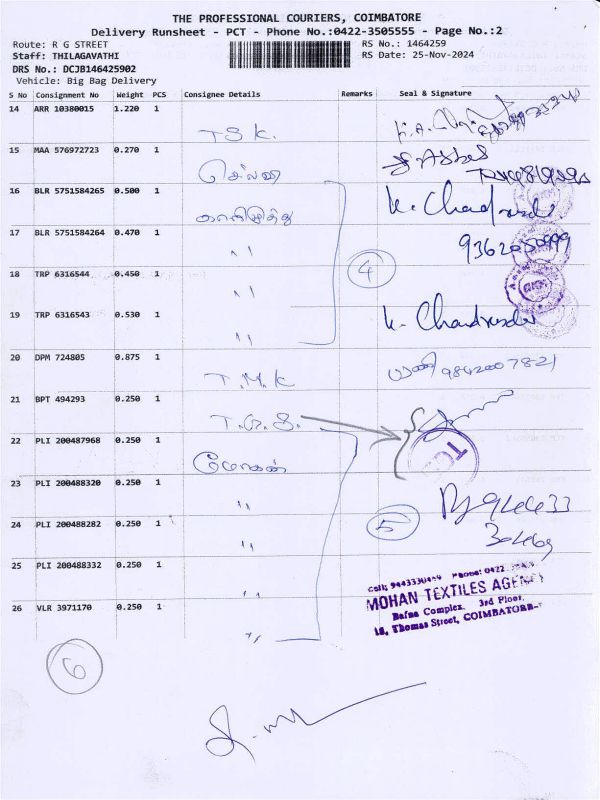 THE PROFESSIONAL COURIERS, COIMBATORE
Delivery Runsheet - PCT - Phone No.:0422-3505555 - Page No.:2
Route: R G STREET
RS No.: 1464259
Staff: THILAGAVATHI
RS Date: 25-Nov-2024
DRS No.: DCJB146425902
Vehicle: Big Bag Delivery
S No Consignment No Weight PCS Consignee Details Remarks Seal & Signature
14 ARR 10380015 1.220 1 T S K.
15 MAA 576972723 0.270 1
16 BLR 5751584265 0.500 1
17 BLR 5751584264 0.470 1 ,,
9362050999
4
18 TRP 6316544 0.450 1 ,,
19 TRP 6316543 0.530 1 ,,
20 DPM 724805 0.875 1 T.M.K 9842007821
21 BPT 494293 0.250 1
22 PLI 200487968 0.250 1 மோகன்
23 PLI 200488320 0.250 1 ,,
24 PLI 200488282 0.250 1 ,,
5
25 PLI 200488332 0.250 1 ,,
26 VLR 3971170 0.250 1 ,,
MOHAN TEXTILES AGENCY
Bafna Complex, 3rd Floor,
18, Thomas Street, COIMBATORE-
6